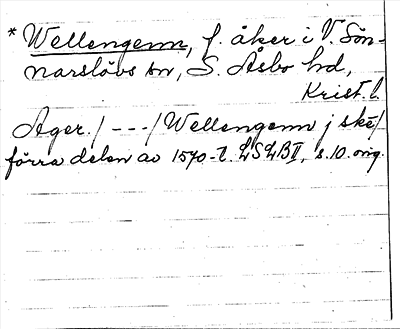 * Wellengenn, f. åker i V. Sön-
narslövs sn, S. Åsbo hd,
Krist. l.
Ager. / - - - / Wellengenn j ske /
förra delen av 1570-t. LSLBII, s. 10. orig.